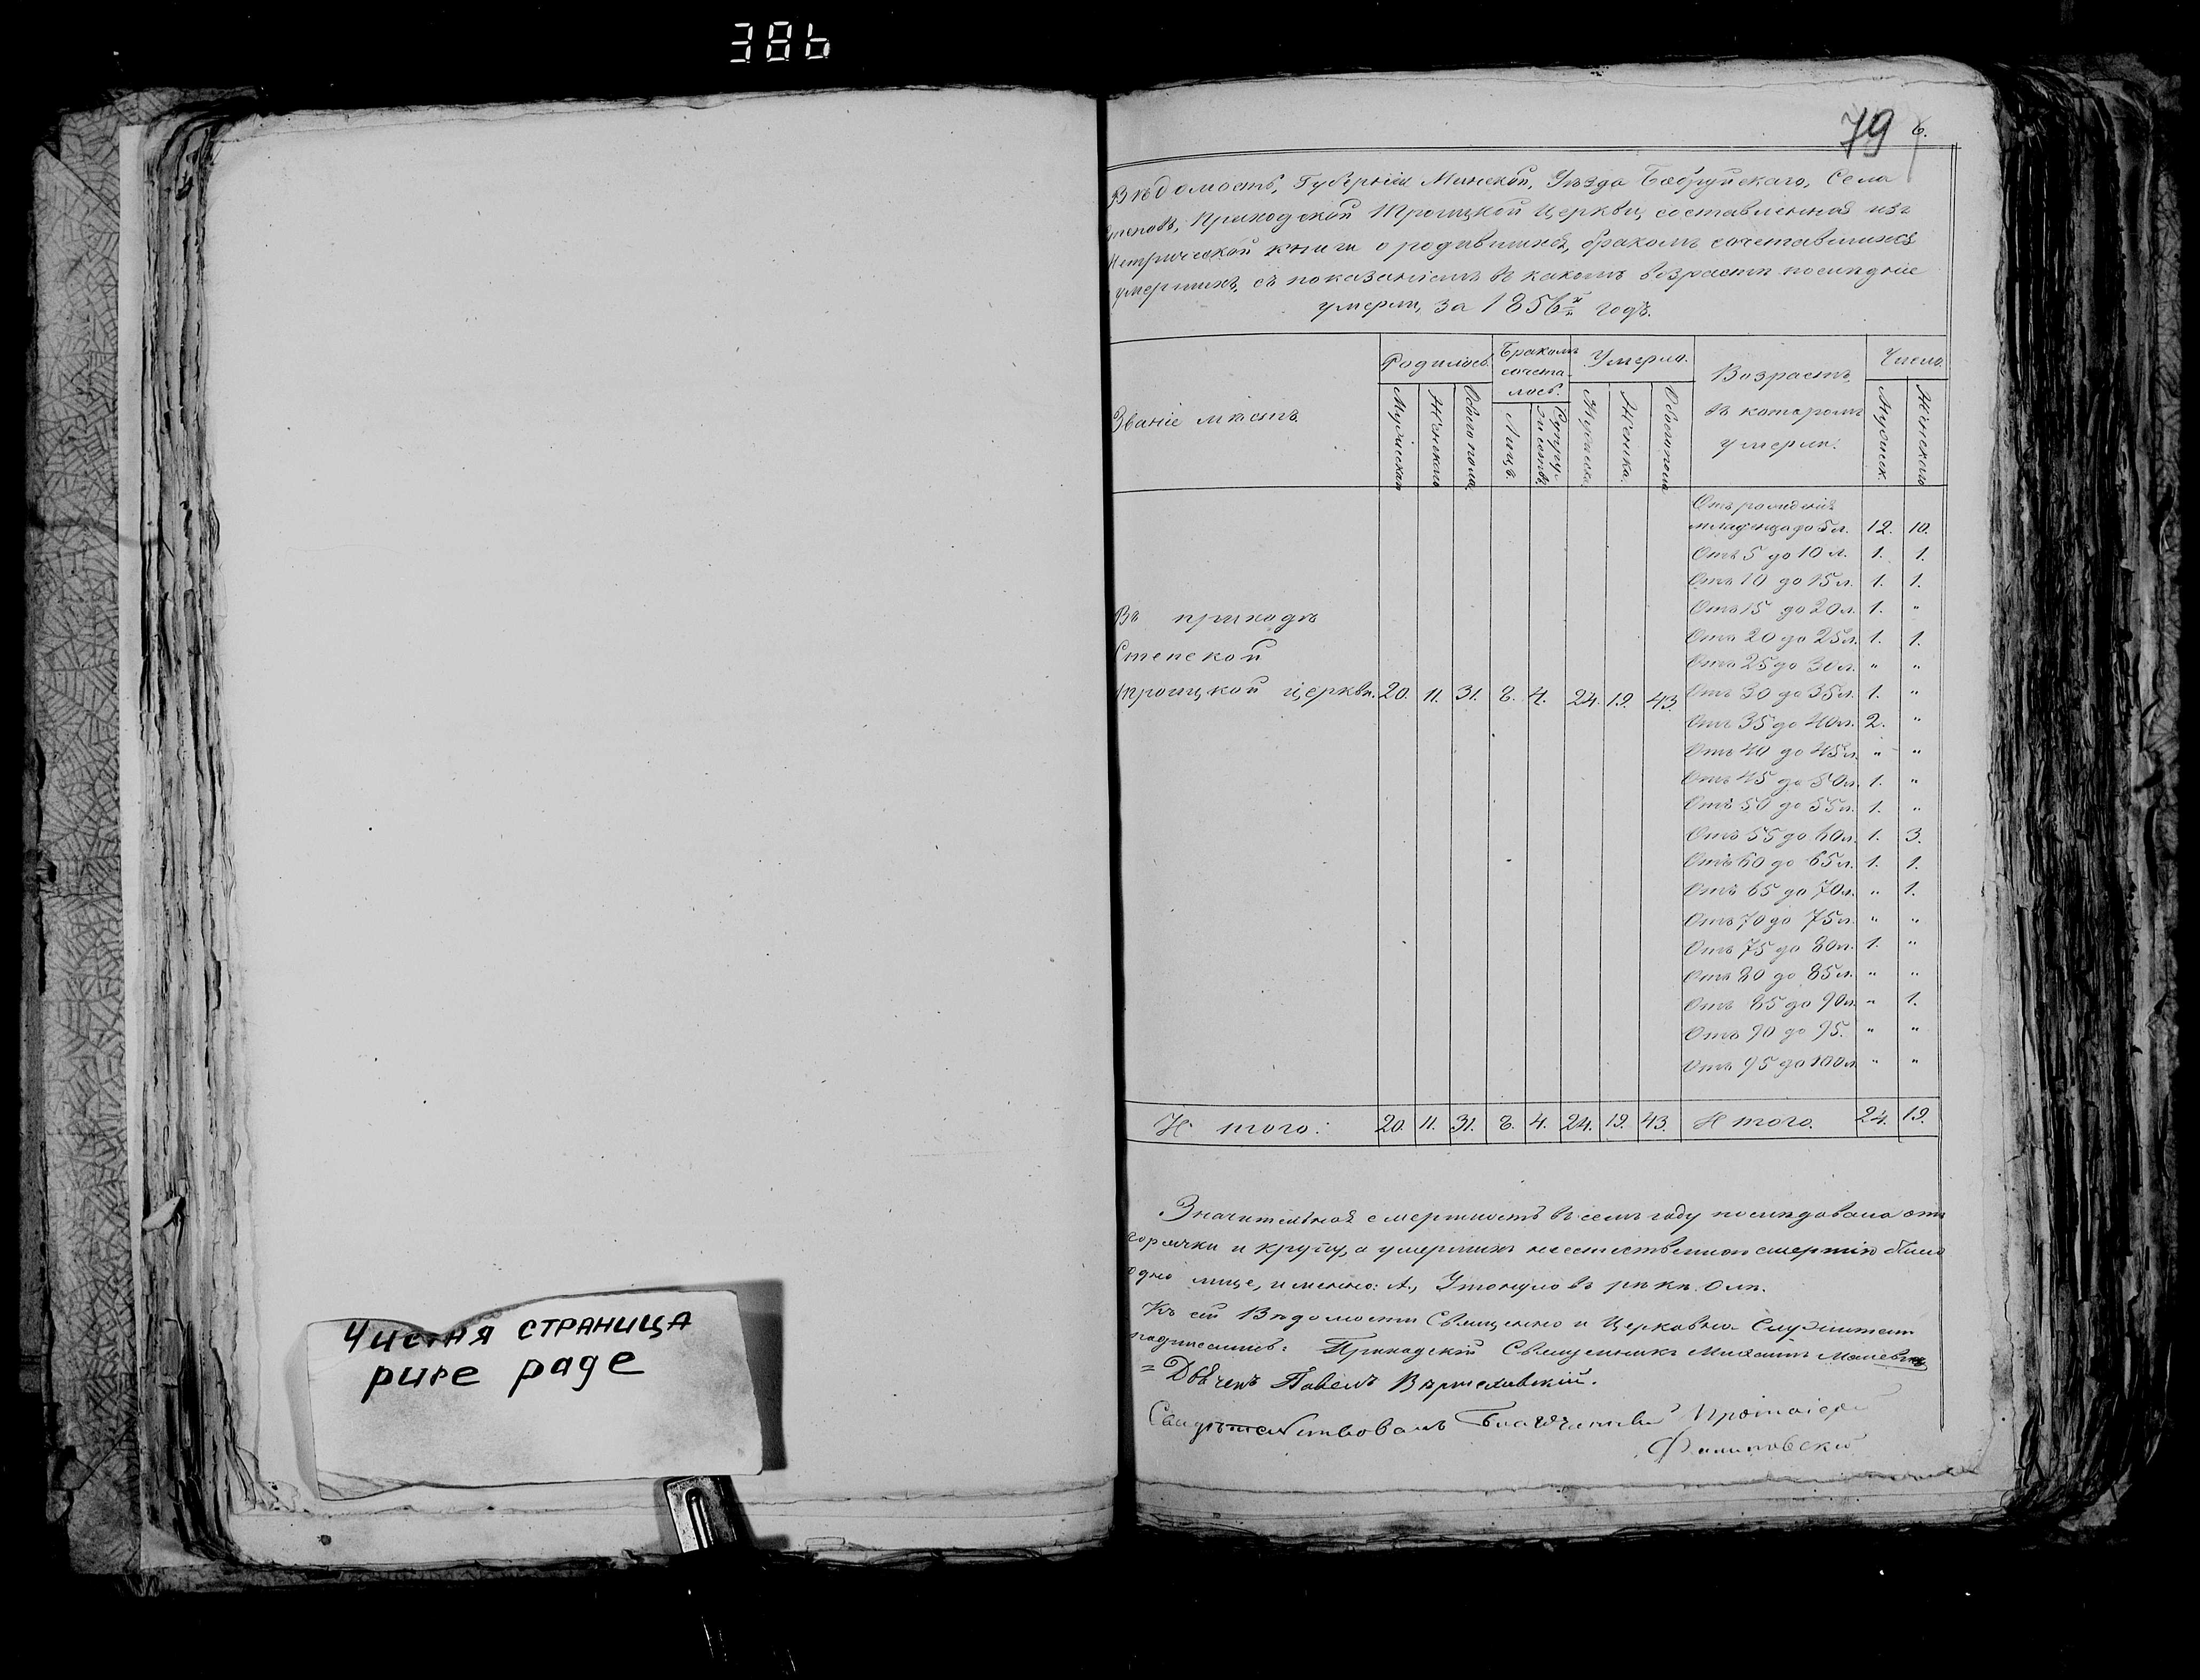 386
Чистая СТРАНИЦА
pure page
79
6.
Вѣдомость, Губерніи Минской, Уѣзда Бобруйскаго, Села
Приходской Троицкой Церкви, составленная изъ
Метрической книги о родившихся, бракомъ сочетавшихся
умершихъ, съ показаніемъ въ какомъ возрастѣ послѣдніе
умерли, за 1856й годъ.
Званіе мѣстъ. Родилось. Бракомъ сочета-лось. Умерло. Возрастъ въ которомъ умерли. Число.
Мужскаго Женскаго Обоего пола. Лицъ. Супру-жествъ. Мужска. Женска. Обоего пола Мужск. Женскаго
Отъ рожденія
младенца до 5 л. 12. 10.
Отъ 5 до 10 л. 1. 1.
Отъ 10 до 15 л. 1. 1.
Отъ 15 до 20 л. 1. "
Въ приходѣ
Отъ 20 до 25 л. 1. 1.
Степской
Отъ 25 до 30 л. " "
Троицкой церкви. 20. 11. 31. 8. 4. 24. 19. 43. Отъ 30 до 35 л. 1. "
Отъ 35 до 40 л. 2. "
Отъ 40 до 45 л. " "
Отъ 45 до 50 л. 1. "
Отъ 50 до 55 л. 1. "
Отъ 55 до 60 л. 1. 3.
Отъ 60 до 65 л. 1. 1.
Отъ 65 до 70 л. " 1.
Отъ 70 до 75 л. " "
Отъ 75 до 80 л. 1. "
Отъ 80 до 85 л. " "
Отъ 85 до 90 л. " 1.
Отъ 90 до 95. " "
Отъ 95 до 100 л. " "
Итого: 20. 11. 31. 8. 4. 24. 19. 43. Итого. 24. 19.
Значительная смертность въ семъ году послѣдовала отъ
горячки и крупу, а умершихъ неестественною смертію было
одно лице, именно: А., Утонуло въ рѣкѣ Олѣ.
Къ сей Вѣдомости Священно и Церковно-Служители
подписались: Приходскій Священникъ Михаилъ
= Дьячекъ Павелъ
Свидѣтельствовалъ Благочинный Протоіерей